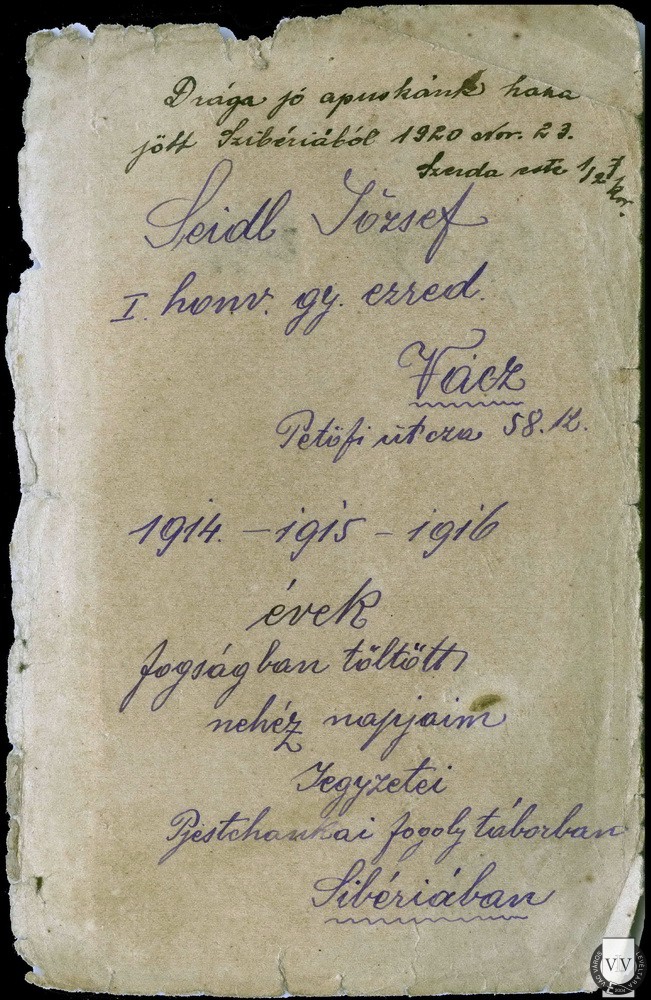 Drága jó apuskánk haza
jött Szibériából 1920 Nov. 23.
Szerda este 1/2 7 kor.
Seidl József
I. honv. gy. ezred.
Vácz
Petöfi útcza 58. sz.
1914. – 1915 – 1916
évek
fogságban töltött
nehéz napjaim
Jegyzetei
Pjestchankai fogoly táborban
Sibériában
VÁC VÁROS LEVÉLTÁRA
VVL